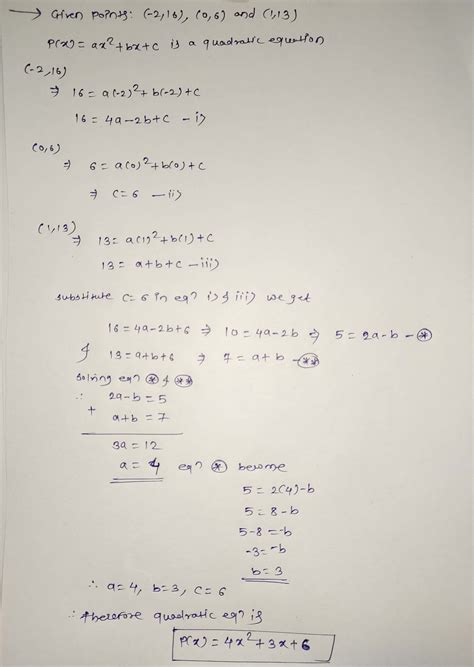 → Given points: (-2,16), (0,6) and (1,13)
P(x) = ax²+bx+c is a quadratic equation
(-2,16)
⇒ 16 = a(-2)²+b(-2)+c
16 = 4a-2b+c - i)
(0,6)
⇒ 6 = a(0)²+b(0)+c
⇒ c=6 - ii)
(1,13)
⇒ 13 = a(1)²+b(1)+c
13 = a+b+c - iii)
substitute c=6 in eqⁿ i) & iii) we get
16=4a-2b+6 ⇒ 10=4a-2b ⇒ 5=2a-b - *
& 13=a+b+6 ⇒ 7=a+b - **
solving eqⁿ * & **
∴ 2a-b=5
+ a+b=7
3a=12
a=4 eqⁿ * become
5=2(4)-b
5=8-b
5-8=-b
-3=-b
b=3
∴ a=4, b=3, c=6
∴ therefore quadratic eqⁿ is
P(x) = 4x²+3x+6